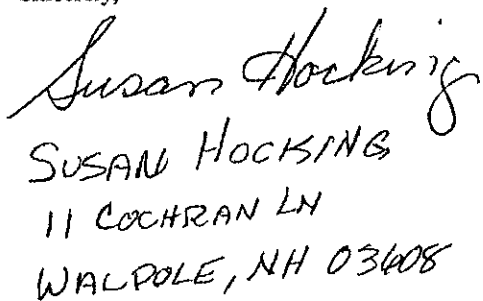 Sincerely,
Susan Hocking
SUSAN HOCKING
11 COCHRAN LN
WALPOLE, NH 03608